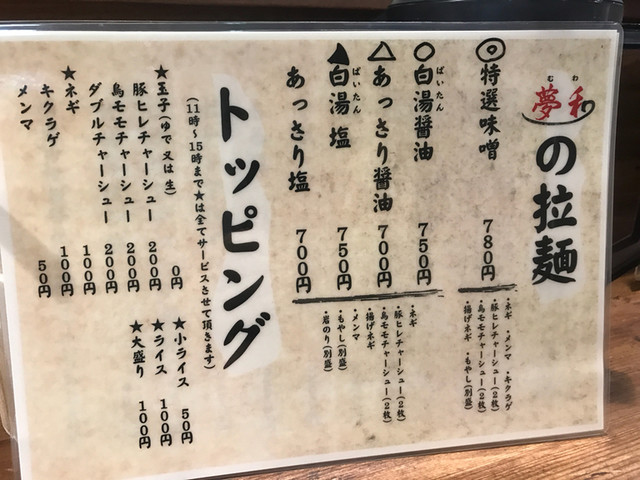 夢和
むわ
の拉麺
◎特選味噌 780円
・ネギ ・メンマ ・キクラゲ
・豚ヒレチャーシュー(2枚)
・鳥モモチャーシュー(2枚)
・揚げネギ ・もやし(別盛)
○白湯醤油 750円
ぱいたん
△あっさり醤油 700円
▲白湯 塩 750円
ぱいたん
あっさり塩 700円
・ネギ
・豚ヒレチャーシュー(2枚)
・鳥モモチャーシュー(2枚)
・揚げネギ
・メンマ
・もやし(別盛)
・岩のり(別盛)
トッピング
(11時~15時まで★は全てサービスさせて頂きます)
★玉子(ゆで又は生) 0円
豚ヒレチャーシュー 200円
鳥モモチャーシュー 200円
ダブルチャーシュー 200円
★ネギ 100円
キクラゲ 100円
メンマ 50円
★小ライス 50円
★ライス 100円
★大盛り 100円